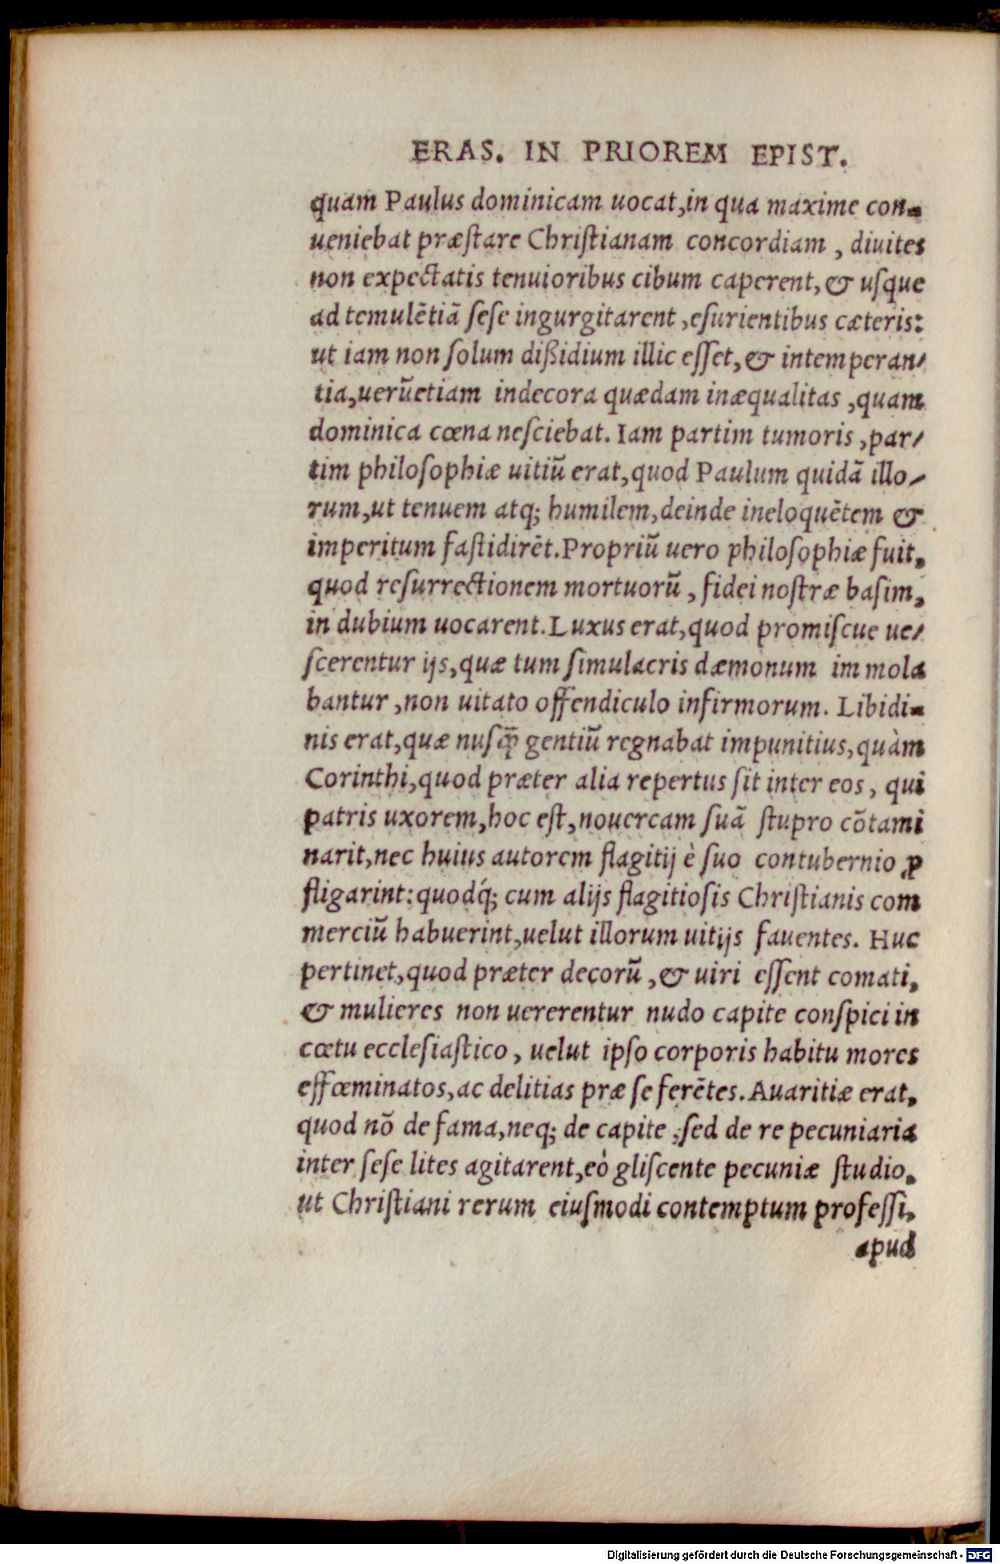 ERAS. IN PRIOREM EPIST.
quam Paulus dominicam uocat, in qua maxime con-
ueniebat præstare Christianam concordiam, diuites
non expectatis tenuioribus cibum caperent, & usque
ad temulẽtiã sese ingurgitarent, esurientibus cæteris:
ut iam non solum dißidium illic esset, & intemperan-
tia, uerũetiam indecora quædam inæqualitas, quam
dominica cœna nesciebat. Iam partim tumoris, par-
tim philosophiæ uitiũ erat, quod Paulum quidã illo-
rum, ut tenuem atq; humilem, deinde ineloquẽtem &
imperitum fastidirẽt. Propriũ uero philosophiæ fuit,
quod resurrectionem mortuorũ, fidei nostræ basim,
in dubium uocarent. Luxus erat, quod promiscue ue-
scerentur ijs, quæ tum simulacris dæmonum immola
bantur, non uitato offendiculo infirmorum. Libidi-
nis erat, quæ nusq̃ gentiũ regnabat impunitius, quàm
Corinthi, quod præter alia repertus sit inter eos, qui
patris uxorem, hoc est, nouercam suã stupro cõtami
narit, nec huius autorem flagitij è suo contubernio ꝓ
fligarint: quodq́; cum alijs flagitiosis Christianis com
merciũ habuerint, uelut illorum uitijs fauentes. Huc
pertinet, quod præter decorũ, & uiri essent comati,
& mulieres non uererentur nudo capite conspici in
cœtu ecclesiastico, uelut ipso corporis habitu mores
effœminatos, ac delitias præ se ferẽtes. Auaritiæ erat,
quod nõ de fama, neq; de capite, sed de re pecuniaria
inter sese lites agitarent, eò gliscente pecuniæ studio,
ut Christiani rerum eiusmodi contemptum professi,
apud
Digitalisierung gefördert durch die Deutsche Forschungsgemeinschaft - DFG